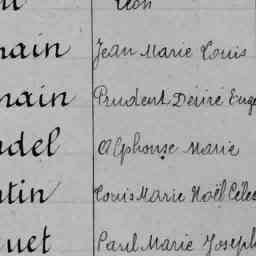 Léon
main Jean Marie Louis
main Prudent Désiré Eug
ndel Alphonse Marie
ntin Louis Marie Noël Céles
quet Paul Marie Joseph